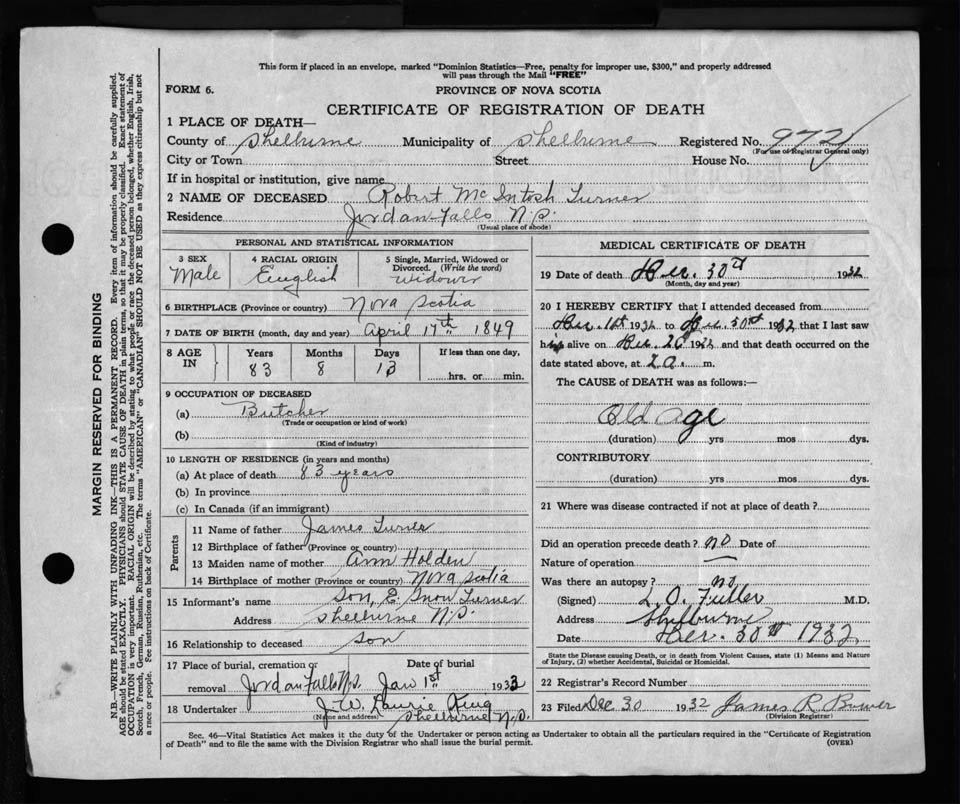 This form if placed in an envelope, marked "Dominion Statistics—Free, penalty for improper use, $300," and properly addressed
will pass through the Mail "FREE"
FORM 6.
PROVINCE OF NOVA SCOTIA
CERTIFICATE OF REGISTRATION OF DEATH
1 PLACE OF DEATH—
County of Shelburne Municipality of Shelburne Registered No. 972
(For use of Registrar General only)
City or Town Street House No.
If in hospital or institution, give name
2 NAME OF DECEASED Robert McIntosh Turner
Residence Jordan Falls N.S.
(Usual place of abode)
PERSONAL AND STATISTICAL INFORMATION
3 SEX 4 RACIAL ORIGIN 5 Single, Married, Widowed or
Divorced. (Write the word)
Male English Widower
6 BIRTHPLACE (Province or country) Nova Scotia
7 DATE OF BIRTH (month, day and year) April 17th 1849
8 AGE IN Years Months Days If less than one day,
83 8 13 hrs. or min.
9 OCCUPATION OF DECEASED
(a) Butcher
(Trade or occupation or kind of work)
(b)
(Kind of industry)
10 LENGTH OF RESIDENCE (in years and months)
(a) At place of death 83 years
(b) In province
(c) In Canada (if an immigrant)
Parents
11 Name of father James Turner
12 Birthplace of father (Province or country)
13 Maiden name of mother Ann Holden
14 Birthplace of mother (Province or country) Nova Scotia
15 Informant's name Son, E. Snow Turner
Address Shelburne N.S.
16 Relationship to deceased Son
17 Place of burial, cremation or Date of burial
removal Jordan Falls N.S. Jan 1st 1933
18 Undertaker J. W. Laurie King
(Name and address) Shelburne N.S.
MEDICAL CERTIFICATE OF DEATH
19 Date of death Dec. 30th 1932
(Month, day and year)
20 I HEREBY CERTIFY that I attended deceased from
Dec. 1st 1932 to Dec. 30th 1932 that I last saw
him alive on Dec. 26 1932 and that death occurred on the
date stated above, at 2 a. m.
The CAUSE of DEATH was as follows:—
Old age
(duration) yrs mos dys.
CONTRIBUTORY
(duration) yrs mos dys.
21 Where was disease contracted if not at place of death?
Did an operation precede death? no Date of
Nature of operation —
Was there an autopsy? no
(Signed) L. O. Fuller M.D.
Address Shelburne
Date Dec. 30th 1932
State the Disease causing Death, or in death from Violent Causes, state (1) Means and Nature
of Injury, (2) whether Accidental, Suicidal or Homicidal.
22 Registrar's Record Number
23 Filed Dec 30 1932 James R Bower
(Division Registrar)
Sec. 46—Vital Statistics Act makes it the duty of the Undertaker or person acting as Undertaker to obtain all the particulars required in the "Certificate of Registration
of Death" and to file the same with the Division Registrar who shall issue the burial permit.
(OVER)
MARGIN RESERVED FOR BINDING
N.B.—WRITE PLAINLY WITH UNFADING INK—THIS IS A PERMANENT RECORD. Every item of information should be carefully supplied.
AGE should be stated EXACTLY. PHYSICIANS should STATE CAUSE OF DEATH in plain terms, so that it may be properly classified. Exact statement of
OCCUPATION is very important. RACIAL ORIGIN will be described by stating to what people or race the deceased person belonged, whether English, Irish,
Scotch, French, German, Russian, Ruthenian, etc. The terms "AMERICAN" or "CANADIAN" SHOULD NOT BE USED as they express citizenship but not
a race or people. See instructions on back of Certificate.